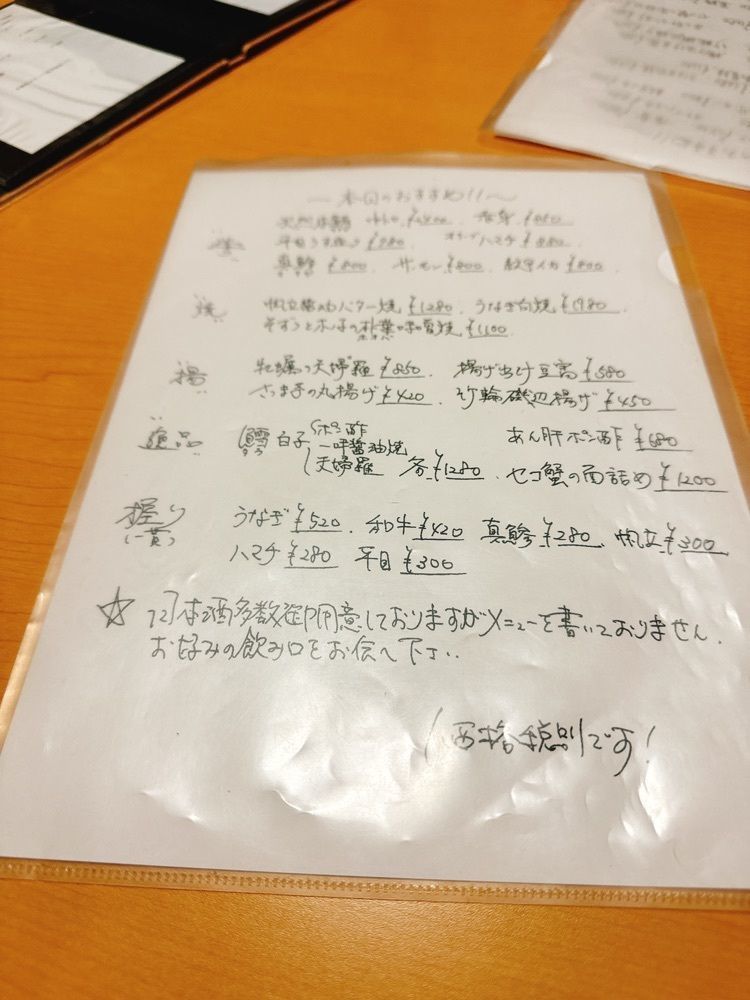 本日のおすすめ!!
天然本鮪 中トロ ¥1400. 赤身 ¥950
平目うす造り ¥980 オリーブハマチ ¥880
真鯵 ¥800 サーモン ¥800. 紋甲イカ ¥800.
焼 帆立醤油バター焼 ¥1280. うなぎ白焼 ¥1980
朴葉味噌焼 ¥1100
揚 牡蠣の天婦羅 ¥850 揚げ出し豆腐 ¥580
さつま芋の丸揚げ ¥420 竹輪磯辺揚げ ¥450
逸品 鱈白子 ポン酢 あん肝ポン酢 ¥680
たら 一味醤油焼
天婦羅 各 ¥1280. セコ蟹の面詰め ¥1200
握り うなぎ ¥520. 和牛 ¥420 真鯵 ¥280. 帆立 ¥300
(一貫) ハマチ ¥280 平目 ¥300
☆ 日本酒多数御用意しておりますがメニューを書いておりません.
お好みの飲み口をお伝へ下さい.
価格税別です!